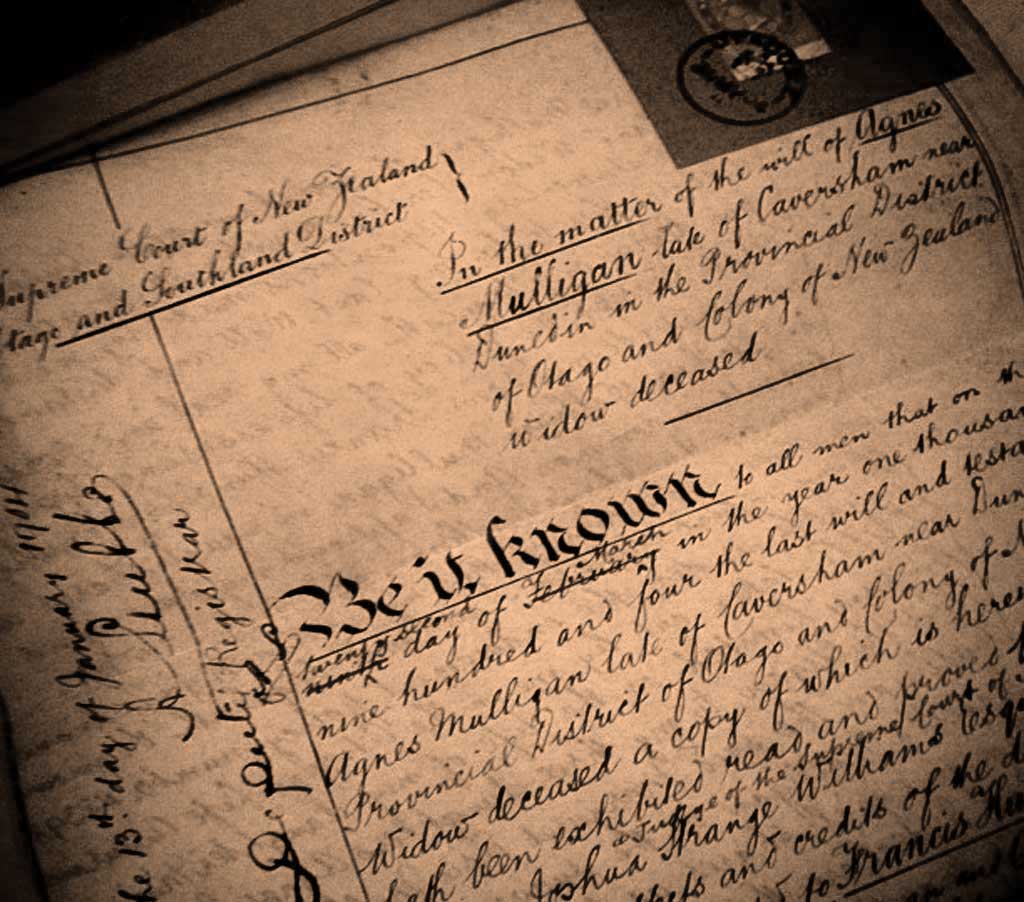 Supreme Court of New Zealand
Otago and Southland District
In the matter of the will of Agnes
Mulligan late of Caversham near
Dunedin in the Provincial District
of Otago and Colony of New Zealand
Widow deceased
Be it known to all men that on th
twenty second March
ninth day of February in the year one thousan
nine hundred and four the last will and testa
Agnes Mulligan late of Caversham near Dun
Provincial District of Otago and Colony of N
Widow deceased a copy of which is here
hath been exhibited read and proved
a Judge of the Supreme Court of
Joshua Strange Williams Esq
and credits of the d
to Francis
he 13th day of January 1911
Deputy Registrar